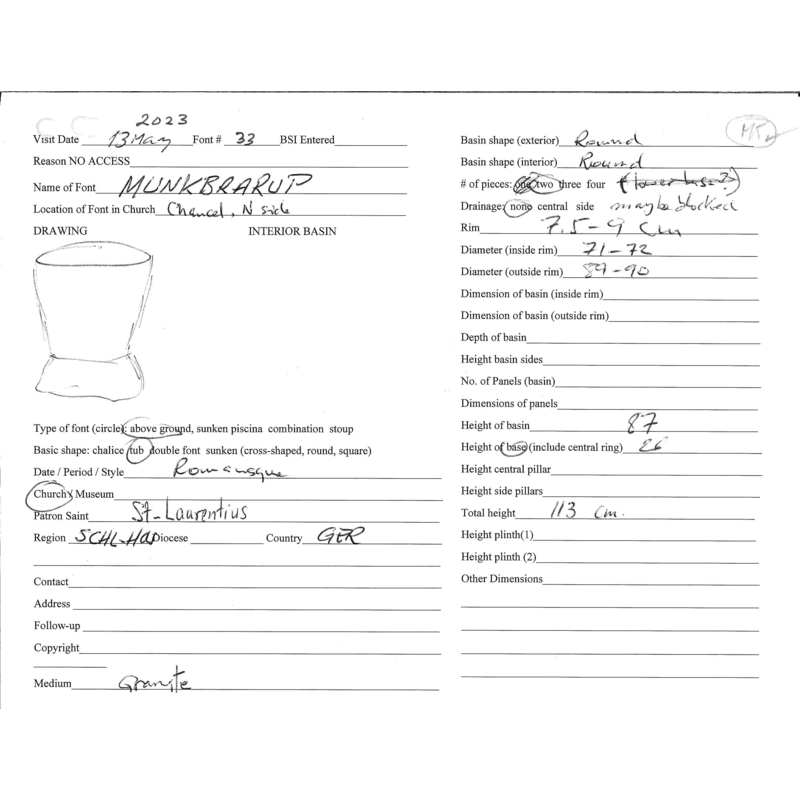 2023
Visit Date 13 May Font # 33 BSI Entered
Reason NO ACCESS
Name of Font MUNKBRARUP
Location of Font in Church Chancel, N side
DRAWING INTERIOR BASIN
Type of font (circle): above ground, sunken piscina combination stoup
Basic shape: chalice tub double font sunken (cross-shaped, round, square)
Date / Period / Style Romanesque
Church / Museum
Patron Saint St-Laurentius
Region SCHL-Hol Diocese Country GER
Contact
Address
Follow-up
Copyright
Medium Granite
Basin shape (exterior) Round
Basin shape (interior) Round
# of pieces: one two three four (lower base?)
Drainage: none central side maybe blocked
Rim 7.5-9 cm
Diameter (inside rim) 71-72
Diameter (outside rim) 89-90
Dimension of basin (inside rim)
Dimension of basin (outside rim)
Depth of basin
Height basin sides
No. of Panels (basin)
Dimensions of panels
Height of basin 87
Height of base (include central ring) 26
Height central pillar
Height side pillars
Total height 113 cm.
Height plinth(1)
Height plinth (2)
Other Dimensions